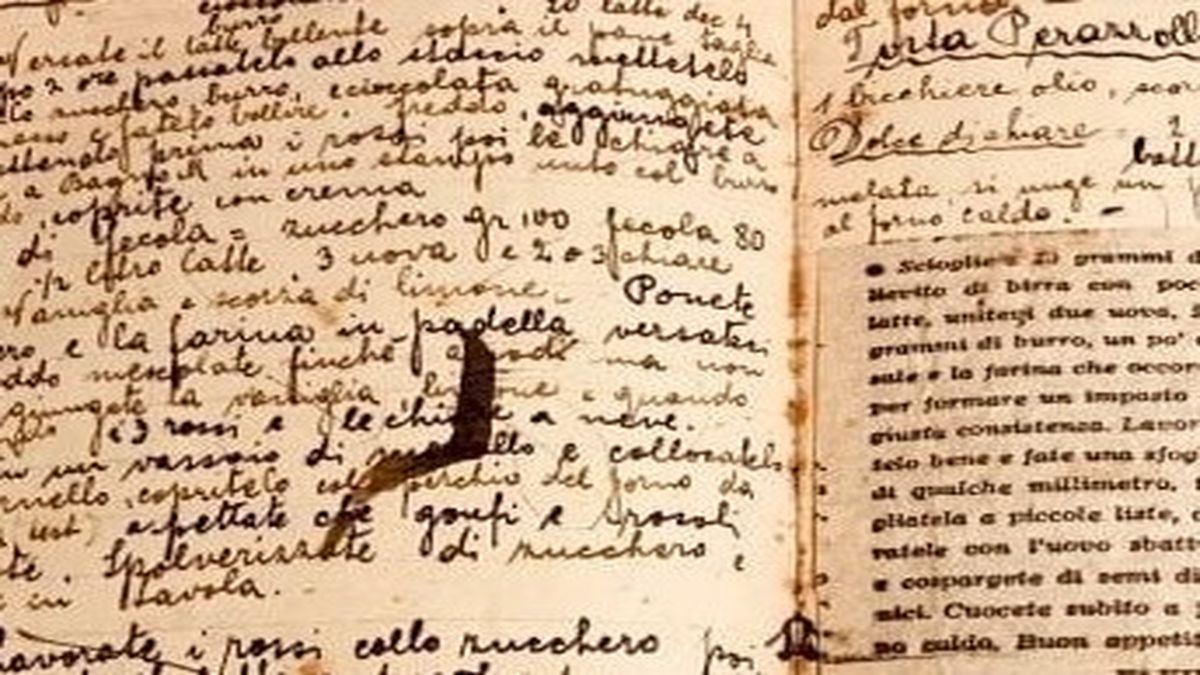 burro 20 latte dec 4
Versate il latte bollente sopra il pane taglia
2 ore passatelo allo staccio mettetelo
zucchero, burro, cioccolata grattuggiata
e fatelo bollire. freddo, aggiungete
prima i rossi poi le chiare a
a Bagno M in uno stampo unto col burro
coprite con crema
di fecola = zucchero gr 100 fecola 80
1/2 litro latte, 3 uova e 2 o 3 chiare
Vaniglia e scorza di limone. Ponete
ero e la farina in padella versatevi
eddo mescolate finchè ma non
giungete la vaniglia, e quando
i 3 rossi e le chiare a neve.
in un vassoio di e collocatelo
rnello, copritelo col perchio del forno da
aspettate che gonfi e
te. Spolverizzate di zucchero e
e in tavola.
Lavorate i rossi collo zucchero poi
dal forno.
Torta Perazzoll
1 bicchiere olio,
Dolce di chiare = 2
batt
melata, si unge un
al forno caldo. -
● Scioglie grammi d
lievito di birra con poc
latte, unitevi due uova,
grammi di burro, un po'
sale e la farina che occor
per formare un impasto
giusta consistenza. Lavor
telo bene e fate una sfog
di qualche millimetro,
gliatela a piccole liste,
ratele con l'uovo sbatt
e cospargete di semi di
nici. Cuocete subito a
no caldo. Buon appeti